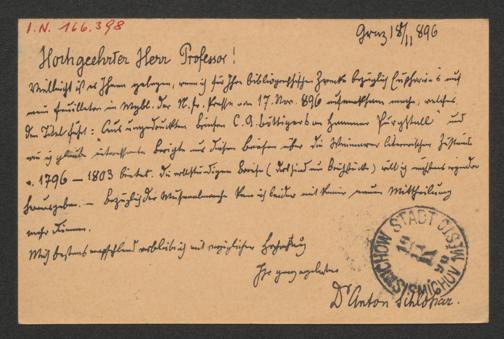 I.N. 166.398
Graz 18/11 896
Hochgeehrter Herr Professor!
Vielleicht ist es Ihnen gelegen, wenn ich für Ihre bibliographischen Zwecke bezüglich Euphorion's auf
mein Feuilleton im Mrgbl. der N. fr. Presse vom 17. Nov. 896 aufmerksam mache, welches
den Titel führt: "Aus ungedruckten Briefen C. A. Böttigers an Hammer Purgstall" und
wie ich glaube interessante Berichte aus diesen Briefen über die Weimarer literarischen Zustände
v. 1796 – 1803 bietet. Die vollständigen Briefe (dort sind nur Bruchstücke) will ich nächstens irgendwo
herausgeben. – Bezüglich der Musenalmanache kann ich leider mit keiner neuen Mittheilung
mehr dienen.
Mich bestens empfehlend verbleibe ich mit vorzüglicher Hochachtung
Ihr ganz ergebenster
Dr Anton Schlossar.
SMICHOW STADT
SMÍCHOV MĚSTO